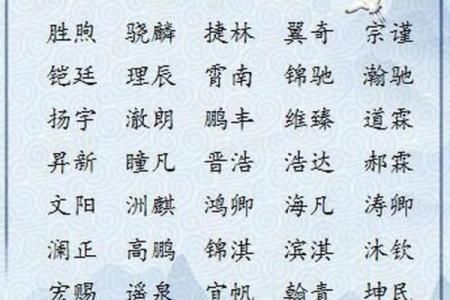 胜煦 骁麟 捷林 翼奇 宗谨
铠廷 理辰 霄南 锦驰 瀚驰
扬宇 澈朗 鹏丰 维臻 道霖
昇新 瞳凡 晋浩 浩达 郝霖
文阳 洲麒 鸿卿 海凡 涛卿
澜正 高鹏 锦淇 滨淇 沐钦
宏赐 遥泉 宜帆 翰青 坤民